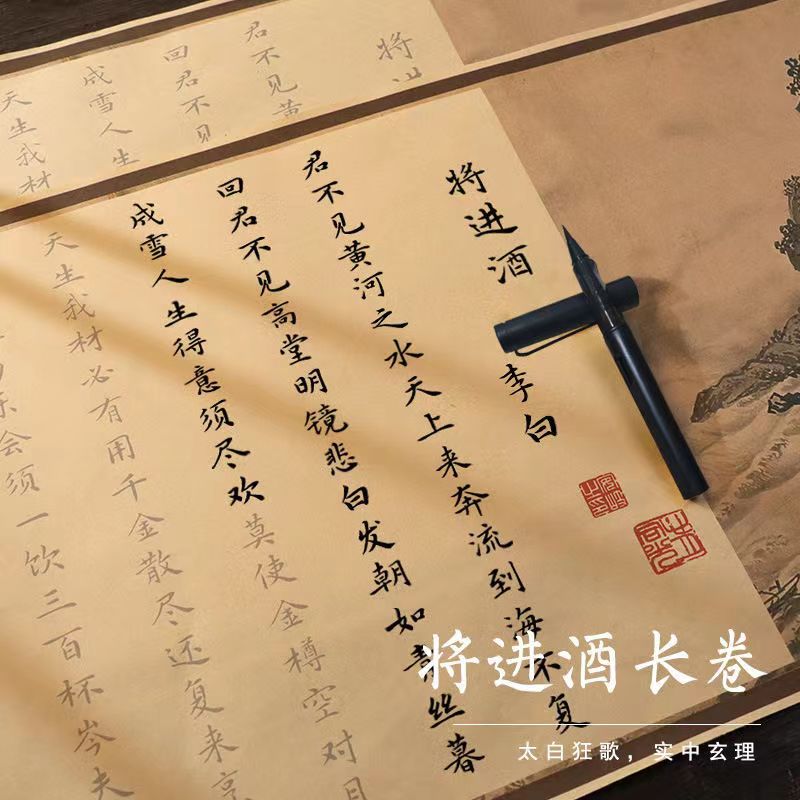 将进
君不见黄
回君不见
成雪人生
天生我材
将进酒
李白
君不见黄河之水天上来奔流到海不复
回君不见高堂明镜悲白发朝如青丝暮
成雪人生得意须尽欢莫使金樽空对月
天生我材必有用千金散尽还复来烹
乐会须一饮三百杯岑夫
将进酒长卷
太白狂歌，实中玄理